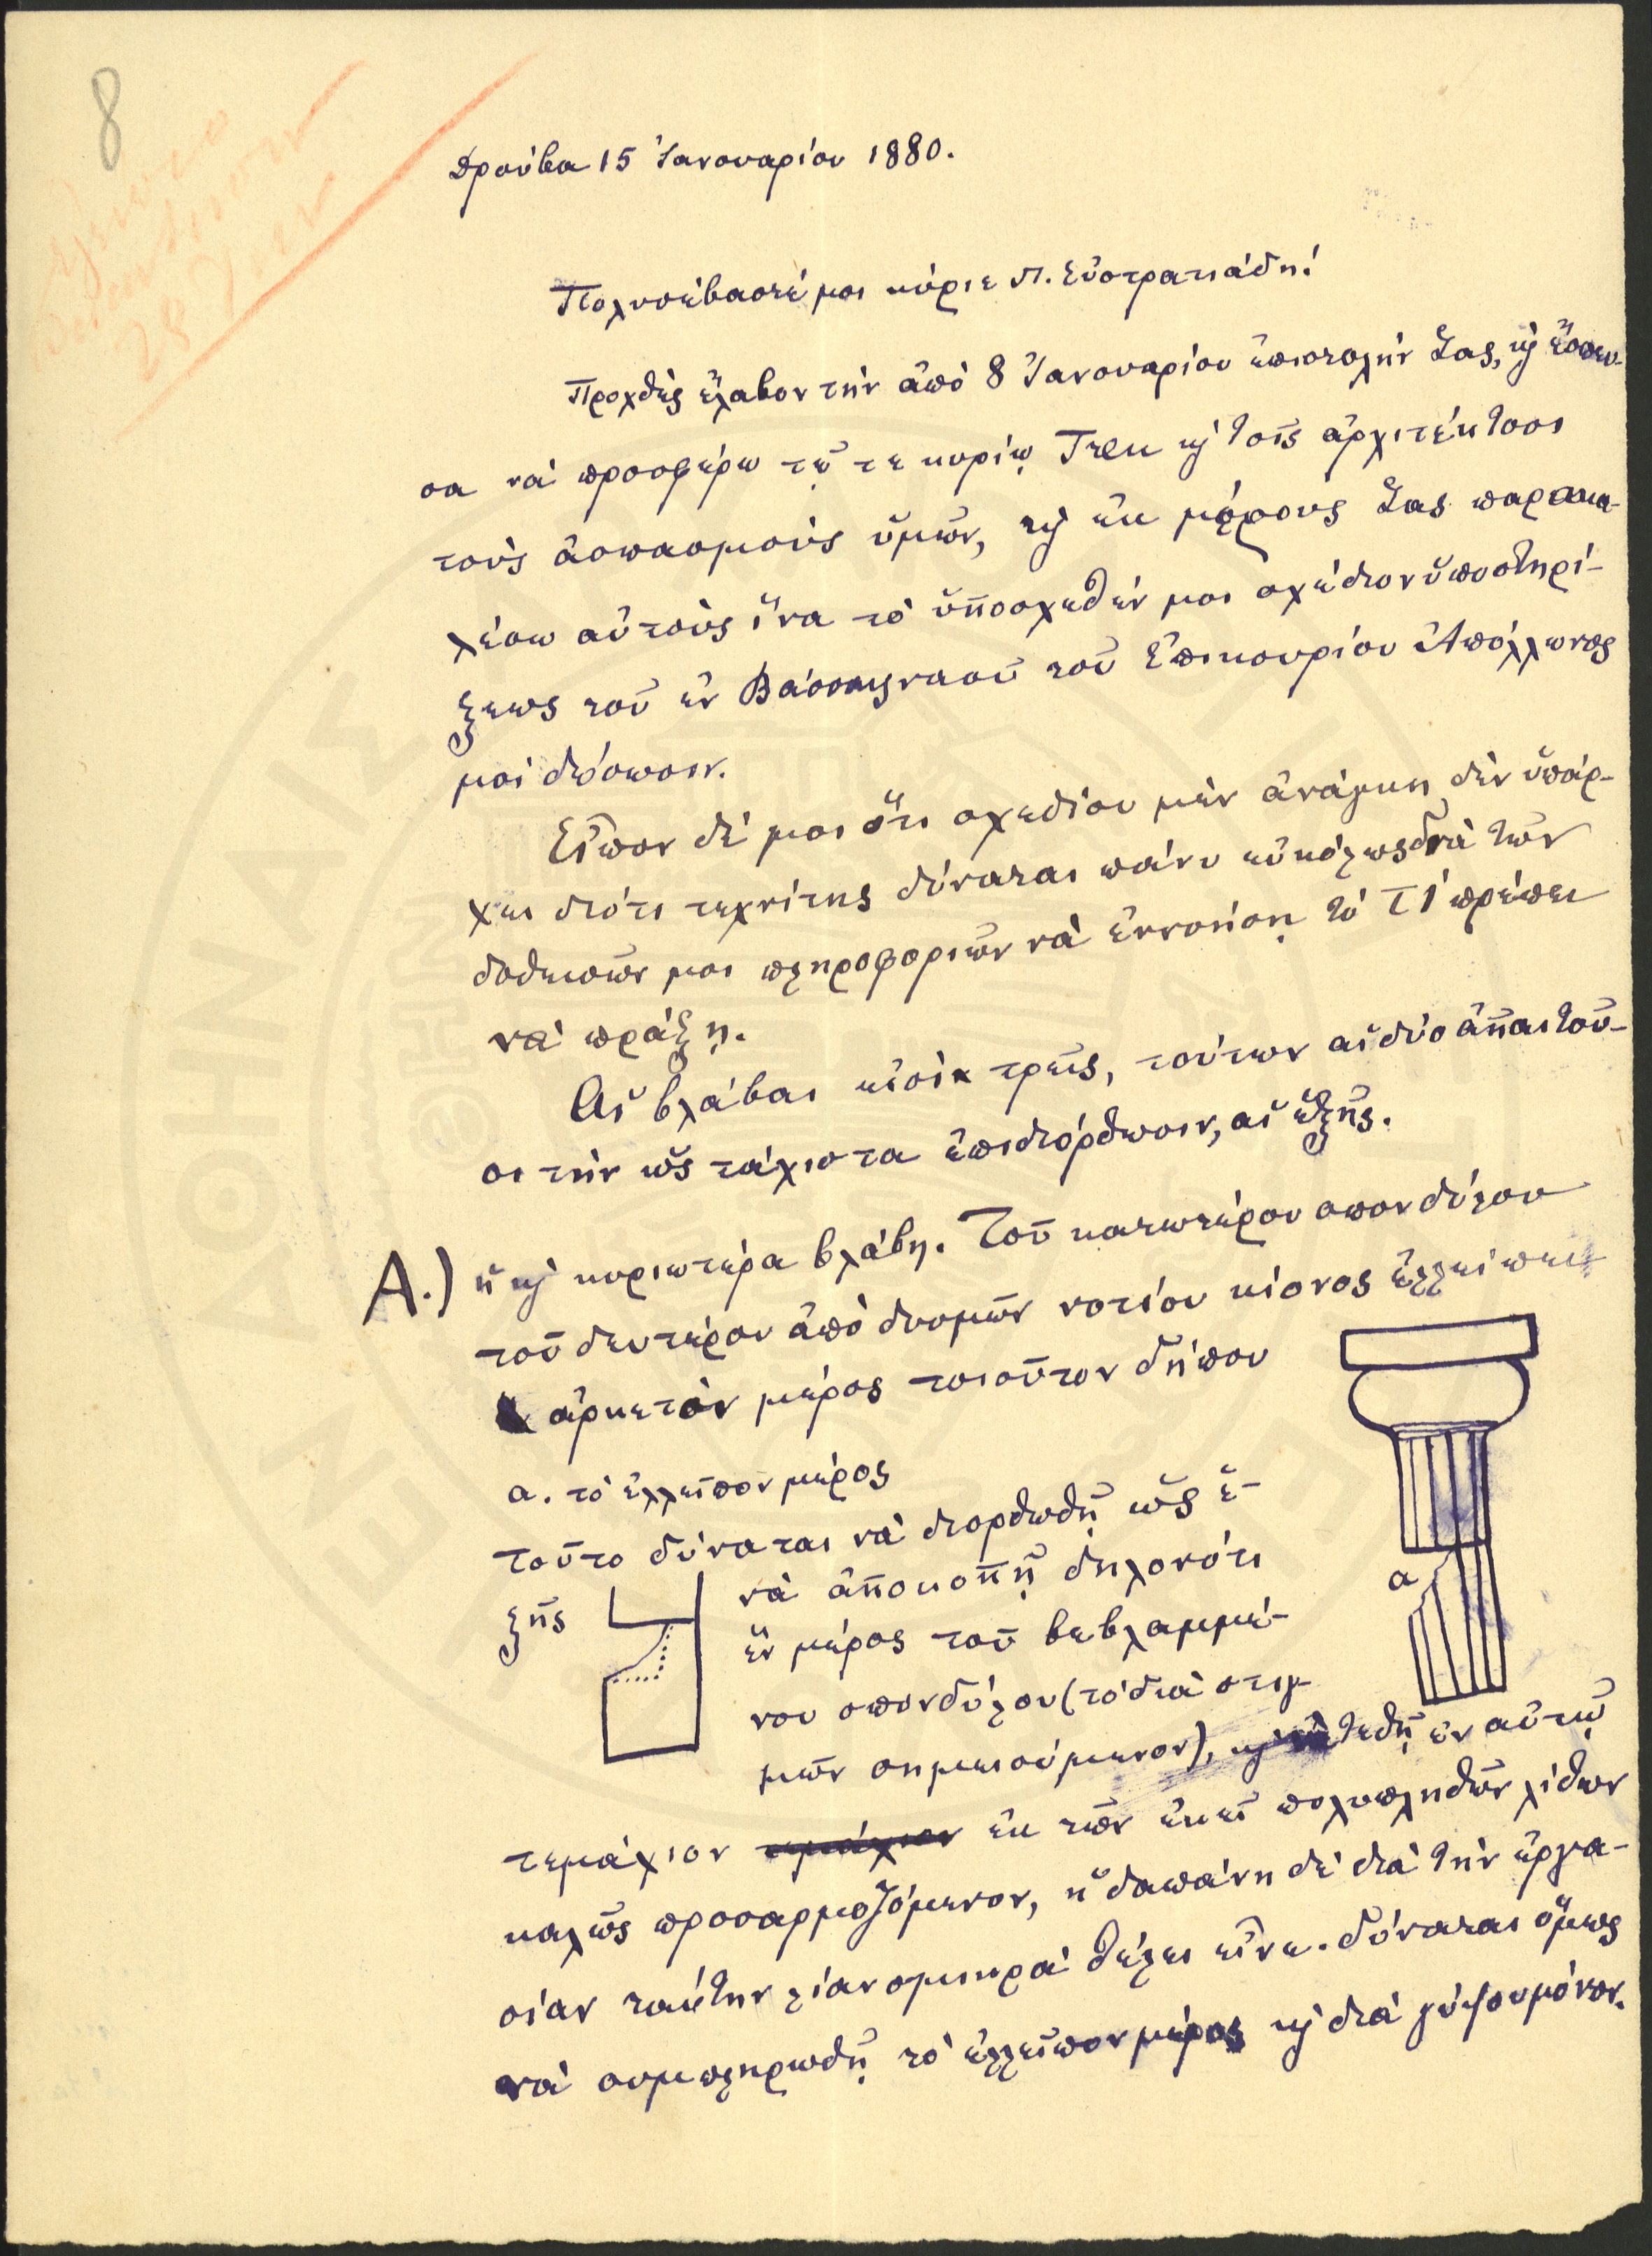 8
Δρούβα 15 Ἰανουαρίου 1880.
Πολυσέβαστέ μοι κύριε Π. Εὐστρατιάδη!
Προχθὲς ἔλαβον τὴν ἀπὸ 8 Ἰανουαρίου ἐπιστολήν Σας, ϗ ἔσπευ-
σα νὰ προσφέρω τῷ τε κυρίῳ Τρευ ϗ τοῖς ἀρχιτέκτοσι
τοὺς ἀσπασμοὺς ὑμῶν, ϗ ἐκ μέρους Σας παρακα-
λέσω αὐτοὺς ἵνα τὸ ὑποσχεθέν μοι σχέδιον ὑποστηρί-
ξεως τοῦ ἐν Βάσσαις ναοῦ τοῦ Ἐπικουρίου Ἀπόλλωνος
μοὶ δώσωσιν.
Εἶπον δέ μοι ὅτι σχεδίου μὲν ἀνάγκη δὲν ὑπάρ-
χει διότι τεχνίτης δύναται πάνυ εὐκόλως διὰ τῶν
δοθεισῶν μοι πληροφοριῶν νὰ ἐννοήσῃ τὸ τί πρέπει
νὰ πράξῃ.
Αἱ βλάβαι εἰσὶ τρεῖς, τούτων αἱ δύο ἀπαιτοῦ-
σι τὴν ὡς τάχιστα ἐπιδιόρθωσιν, αἱ ἑξῆς.
Α.) ἡ ϗ κυριωτέρα βλάβη. Τοῦ κατωτέρου σπονδύλου
τοῦ δευτέρου ἀπὸ δυσμῶν νοτίου κίονος ἐλλείπει
ἀρκετὸν μέρος τοιοῦτον δήπου
α. τὸ ἐλλεῖπον μέρος
α
τοῦτο δύναται νὰ διορθωθῇ ὡς ἑ-
ξῆς νὰ ἀποκοπῇ δηλονότι
ἓν μέρος τοῦ βεβλαμμέ-
νου σπονδύλου (τὸ διὰ στιγ-
μῶν σημειούμενον), ϗ νὰ τεθῇ ἐν αὐτῷ
τεμάχιον τεμάχιον ἐκ τῶν ἐκεῖ πολυπληθῶν λίθων
καλῶς προσαρμοζόμενον, ἡ δαπάνη δὲ διὰ τὴν ἐργα-
σίαν ταύτην λίαν σμικρὰ θέλει εἶνε. δύναται ὅμως
νὰ συμπληρωθῇ τὸ ἐλλεῖπον μέρος ϗ διὰ γύψου μόνον.